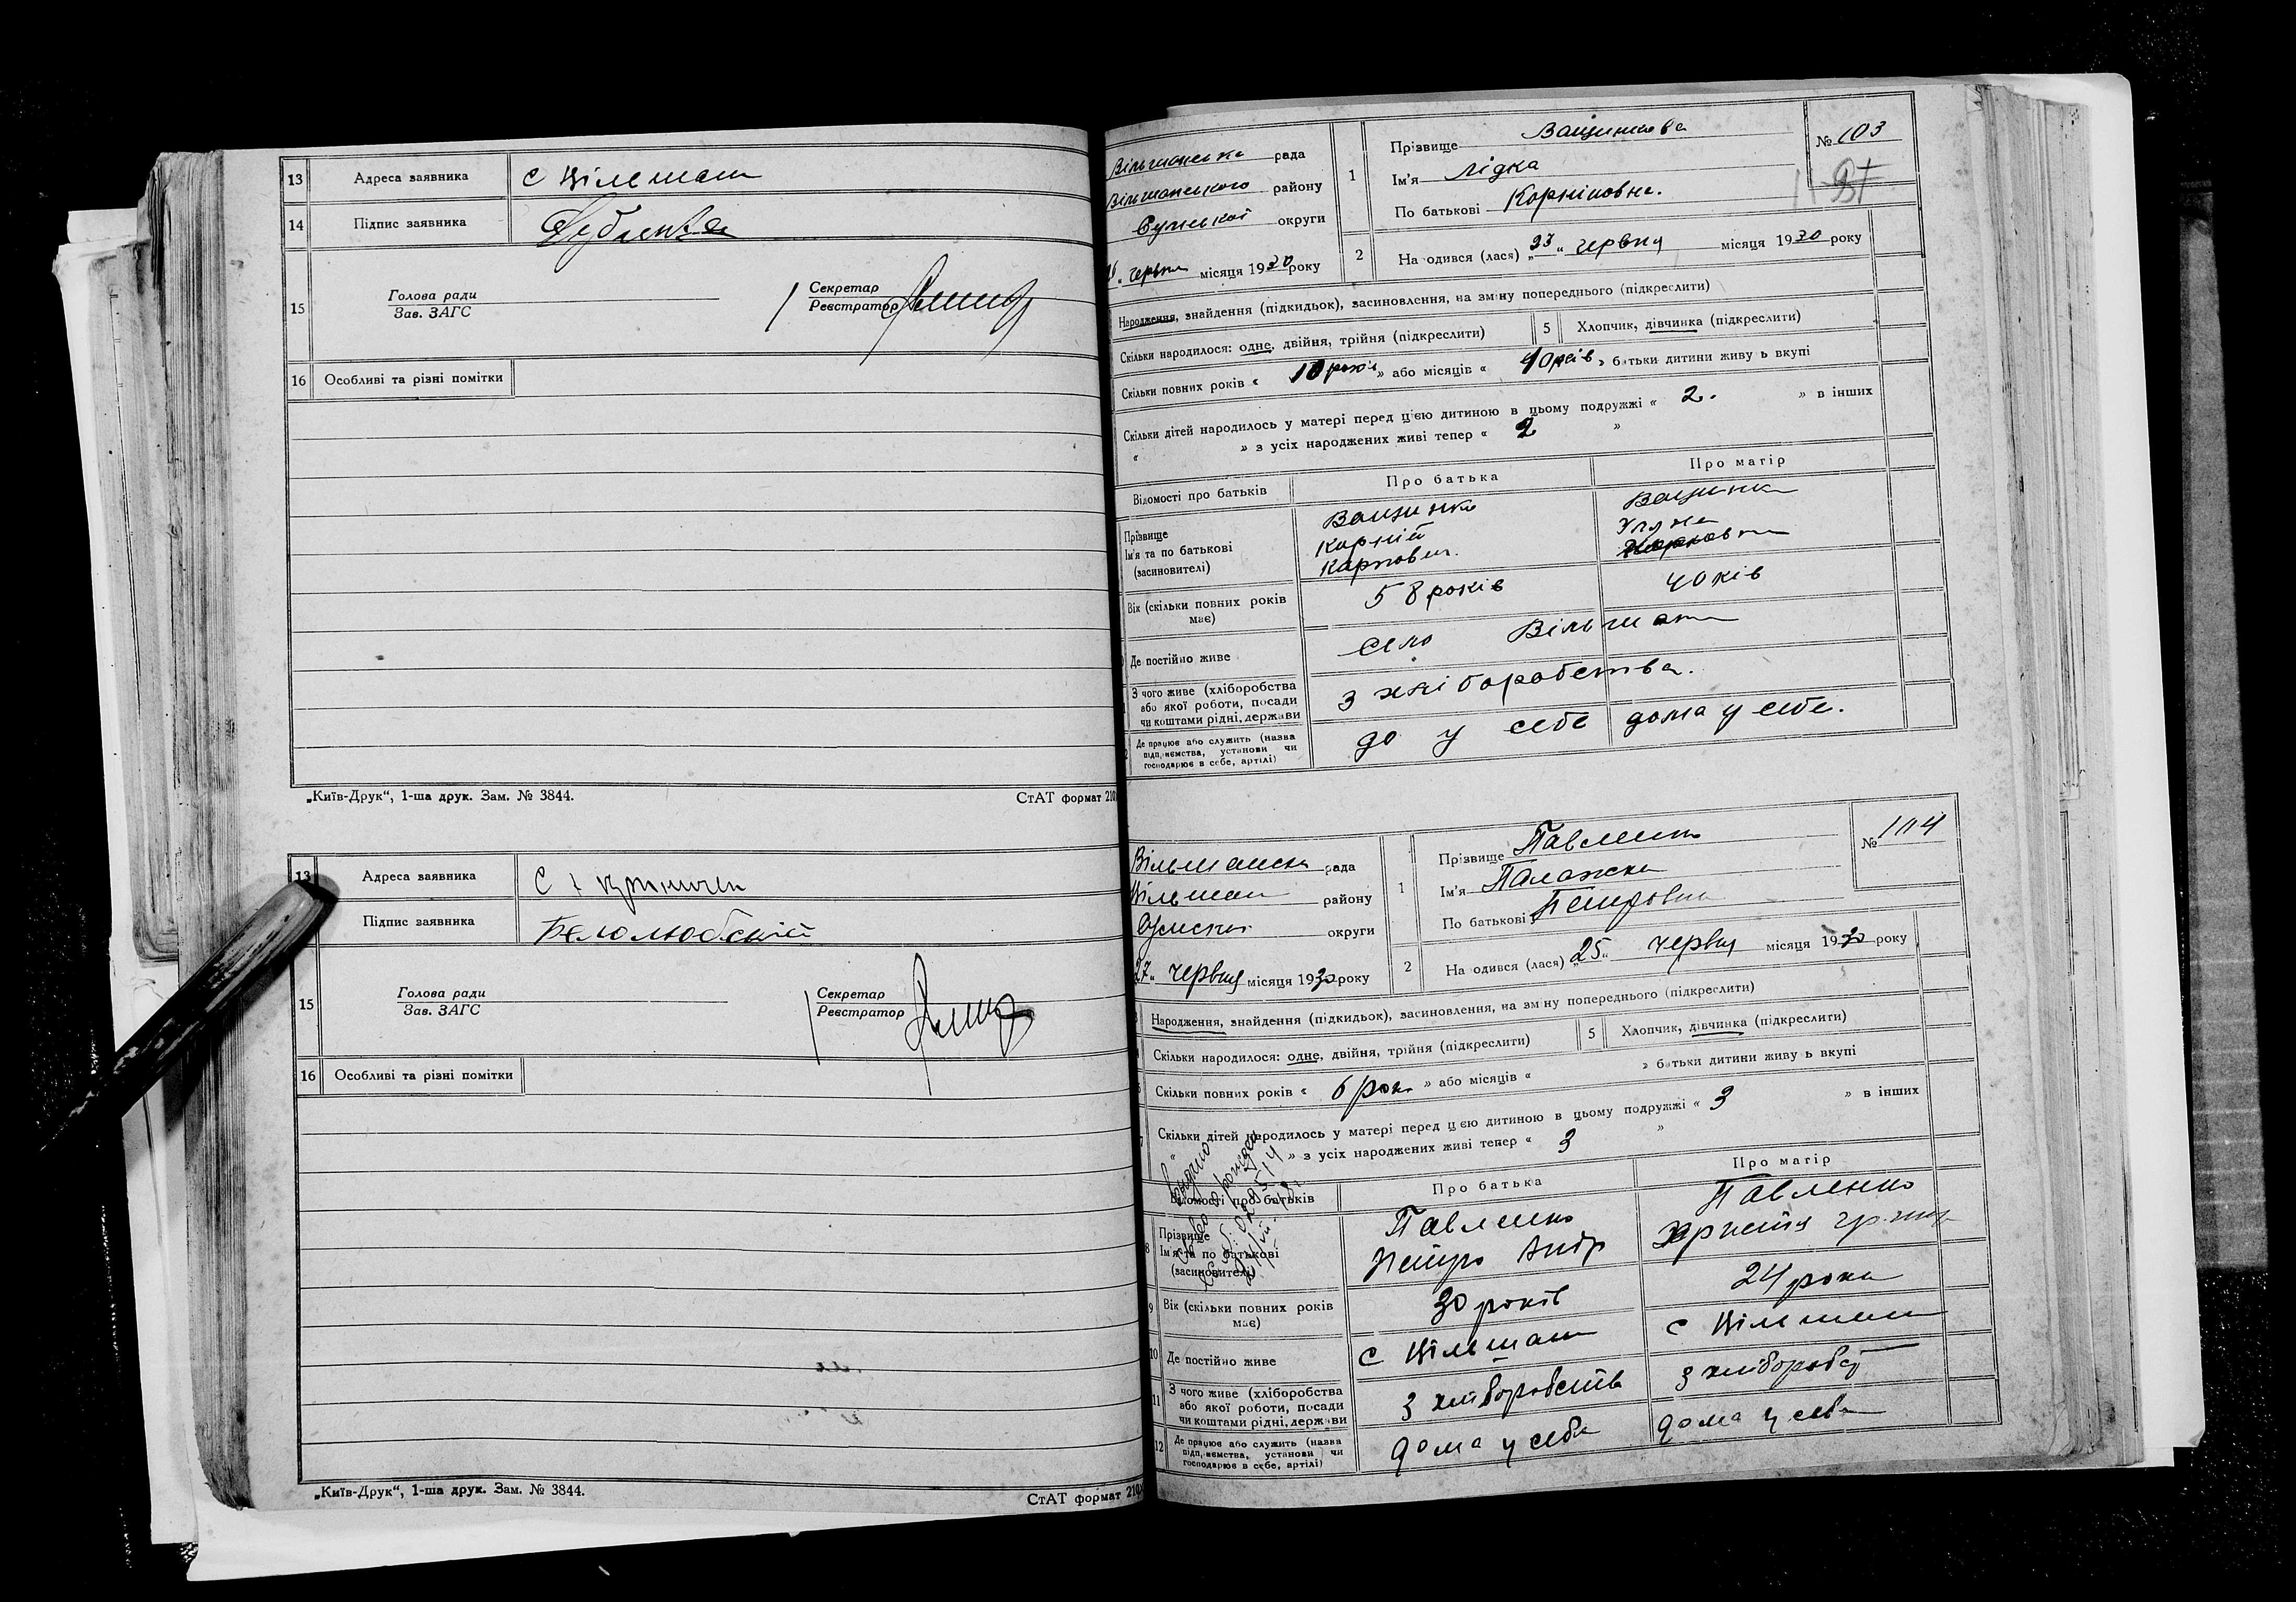 13 Адреса заявника С Вільшани
14 Підпис заявника
15 Голова ради
Зав. ЗАГС
Секретар
Реєстратор
16 Особливі та різні помітки
„Київ-Друк“, 1-ша друк. Зам. № 3844.
СтАТ формат 210
13 Адреса заявника С
Підпис заявника Бєлолюбский
15 Голова ради
Зав. ЗАГС
Секретар
Реєстратор
16 Особливі та різні помітки
„Київ-Друк“, 1-ша друк. Зам. № 3844.
СтАТ формат 210
Вільшанська рада
Вільшанського району
Сумської округи
червня місяця 1930 року
1 Прізвище
Ім'я Лідка
По батькові Корніповна.
№ 103
2 На одився (лася) „23“ червня місяця 1930 року
Народження, знайдення (підкидьок), засиновлення, на зміну попереднього (підкреслити)
Скільки народилося: одне, двійня, трійня (підкреслити) 5 Хлопчик, дівчинка (підкреслити)
Скільки повних років « 10 років » або місяців « » батьки дитини живу ь вкупі
Скільки дітей народилось у матері перед цією дитиною в цьому подружжі « 2. » в інших
« » з усіх народжених живі тепер « 2 »
Відомості про батьків Про батька Про матір
Прізвище Ващинко Ващинко
Ім'я та по батькові Корній Уляна
(засиновителі) Карпович.
Вік (скільки повних років має) 58 років 40 ків
Де постійно живе село Вільшани
З чого живе (хліборобства
або якої роботи, посади
чи коштами рідні, держави
З хліборобства.
Де працює або служить (назва
підприємства, установи чи
господарює в себе, артілі)
до у себе дома у себе.
Вільшанска рада
Вільшан району
Сумска округи
27“ червня місяця 1930 року
1 Прізвище Павленко
Ім'я Палажка
По батькові Петровна
№ 104
2 На одився (лася) „25“ червня місяця 1930 року
Народження, знайдення (підкидьок), засиновлення, на зміну попереднього (підкреслити)
Скільки народилося: одне, двійня, трійня (підкреслити) 5 Хлопчик, дівчинка (підкреслити)
Скільки повних років « 6 рок » або місяців « » батьки дитини живу ь вкупі
Скільки дітей народилось у матері перед цією дитиною в цьому подружжі « 3 » в інших
« » з усіх народжених живі тепер « 3 »
Відомості про батьків Про батька Про матір
8 Прізвище Павленко Павленко
Ім'я та по батькові Петро Андр Христя
(засиновителі)
9 Вік (скільки повних років має) 30 років 24 роки
10 Де постійно живе С Вільшани С Вільшани
11 З чого живе (хліборобства
або якої роботи, посади
чи коштами рідні, держави
З хліборобств З хлібороб
12 Де працює або служить (назва
підприємства, установи чи
господарює в себе, артілі)
дома у себе дома у себе